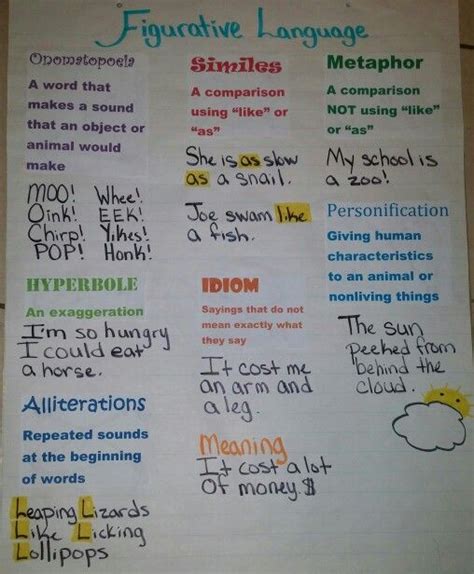 Figurative Language
Onomatopoeia
A word that
makes a sound
that an object or
animal would
make
MOO! Whee!
Oink! EEK!
Chirp! Yikes!
POP! Honk!
Similes
A comparison
using “like” or
“as”
She is as slow
as a snail.
Joe swam like
a fish.
Metaphor
A comparison
NOT using “like”
or “as”
My school is
a zoo!
Personification
Giving human
characteristics
to an animal or
nonliving things
The sun
peeked from
behind the
cloud.
HYPERBOLE
An exaggeration
I'm so hungry
I could eat
a horse.
IDIOM
Sayings that do not
mean exactly what
they say
It cost me
an arm and
a leg.
Meaning
It cost a lot
Of money.$
Alliterations
Repeated sounds
at the beginning
of words
Leaping Lizards
Like Licking
Lollipops